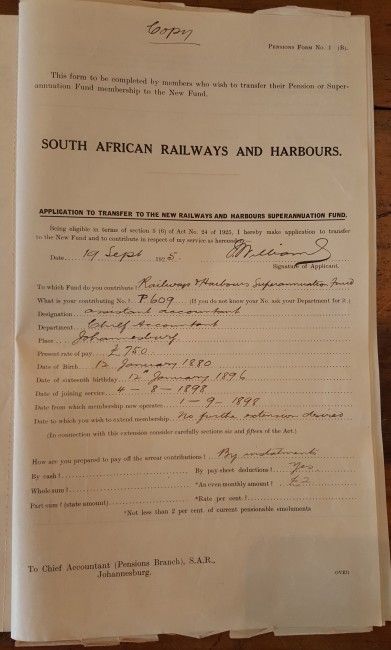 Copy
PENSIONS FORM No. 1
This form to be completed by members who wish to transfer their Pension or Super-
annuation Fund membership to the New Fund.
SOUTH AFRICAN RAILWAYS AND HARBOURS.
APPLICATION TO TRANSFER TO THE NEW RAILWAYS AND HARBOURS SUPERANNUATION FUND.
Being eligible in terms of section 5 (6) of Act No. 24 of 1925, I hereby make application to transfer
to the New Fund and to contribute in respect of my service as hereunder
Date 14 Sept 1925. Williams
Signature of Applicant.
To which Fund do you contribute Railways & Harbours Superannuation Fund
What is your contributing No.? P609 (If you do not know your No. ask your Department for it.)
Designation assistant accountant
Department Chief Accountant
Place Johannesburg
Present rate of pay £750
Date of Birth 12 January 1880
Date of sixteenth birthday 12th January 1896
Date of joining service 4-8-1898
Date from which membership now operates 1-9-1898
Date to which you wish to extend membership No further extension desired
(In connection with this extension consider carefully sections six and fifteen of the Act.)
How are you prepared to pay off the arrear contributions? By instalments
By cash? By pay-sheet deductions? Yes
Whole sum? *An even monthly amount? £2
Part sum? (state amount) *Rate per cent.?
*Not less than 2 per cent. of current pensionable emoluments
To Chief Accountant (Pensions Branch), S.A.R.,
Johannesburg.
OVER.